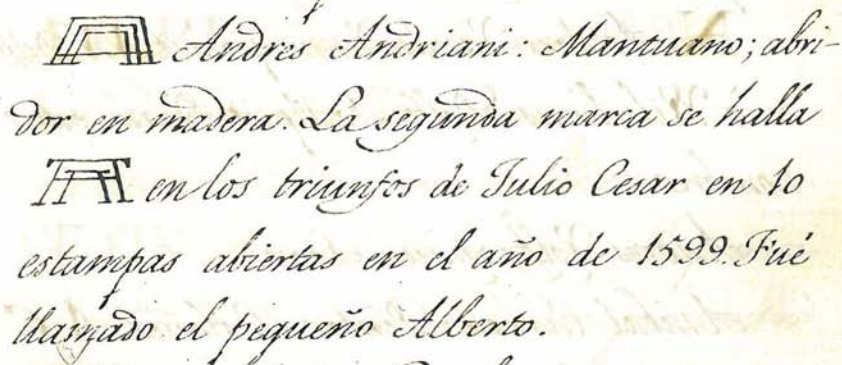 Andres Andriani: Mantuano; abri-
dor en madera. La segunda marca se halla
en los triunfos de Julio Cesar en 10
estampas abiertas en el año de 1599. Fué
llamado el pequeño Alberto.